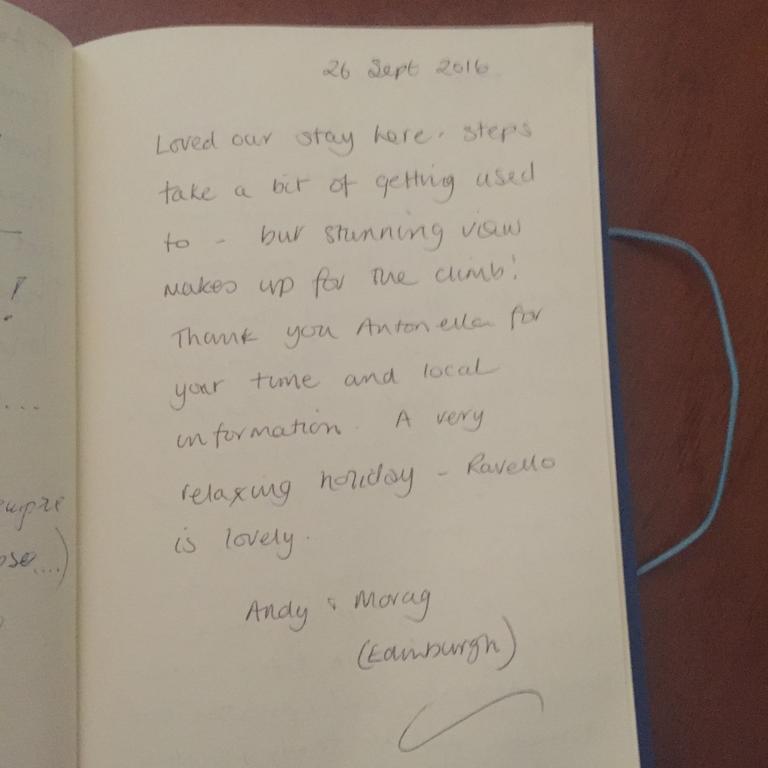 26 Sept 2016
Loved our stay here. steps
take a bit of getting used
to - but stunning view
makes up for the climb!
Thank you Antonella for
your time and local
information. A very
relaxing holiday - Ravello
is lovely.
Andy & Morag
(Edinburgh)